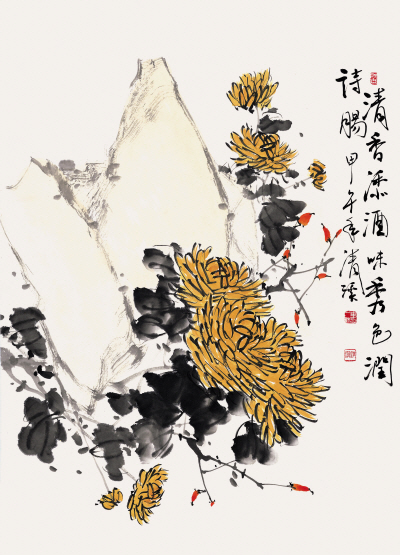 清香添酒味秀色潤
詩腸甲午年清